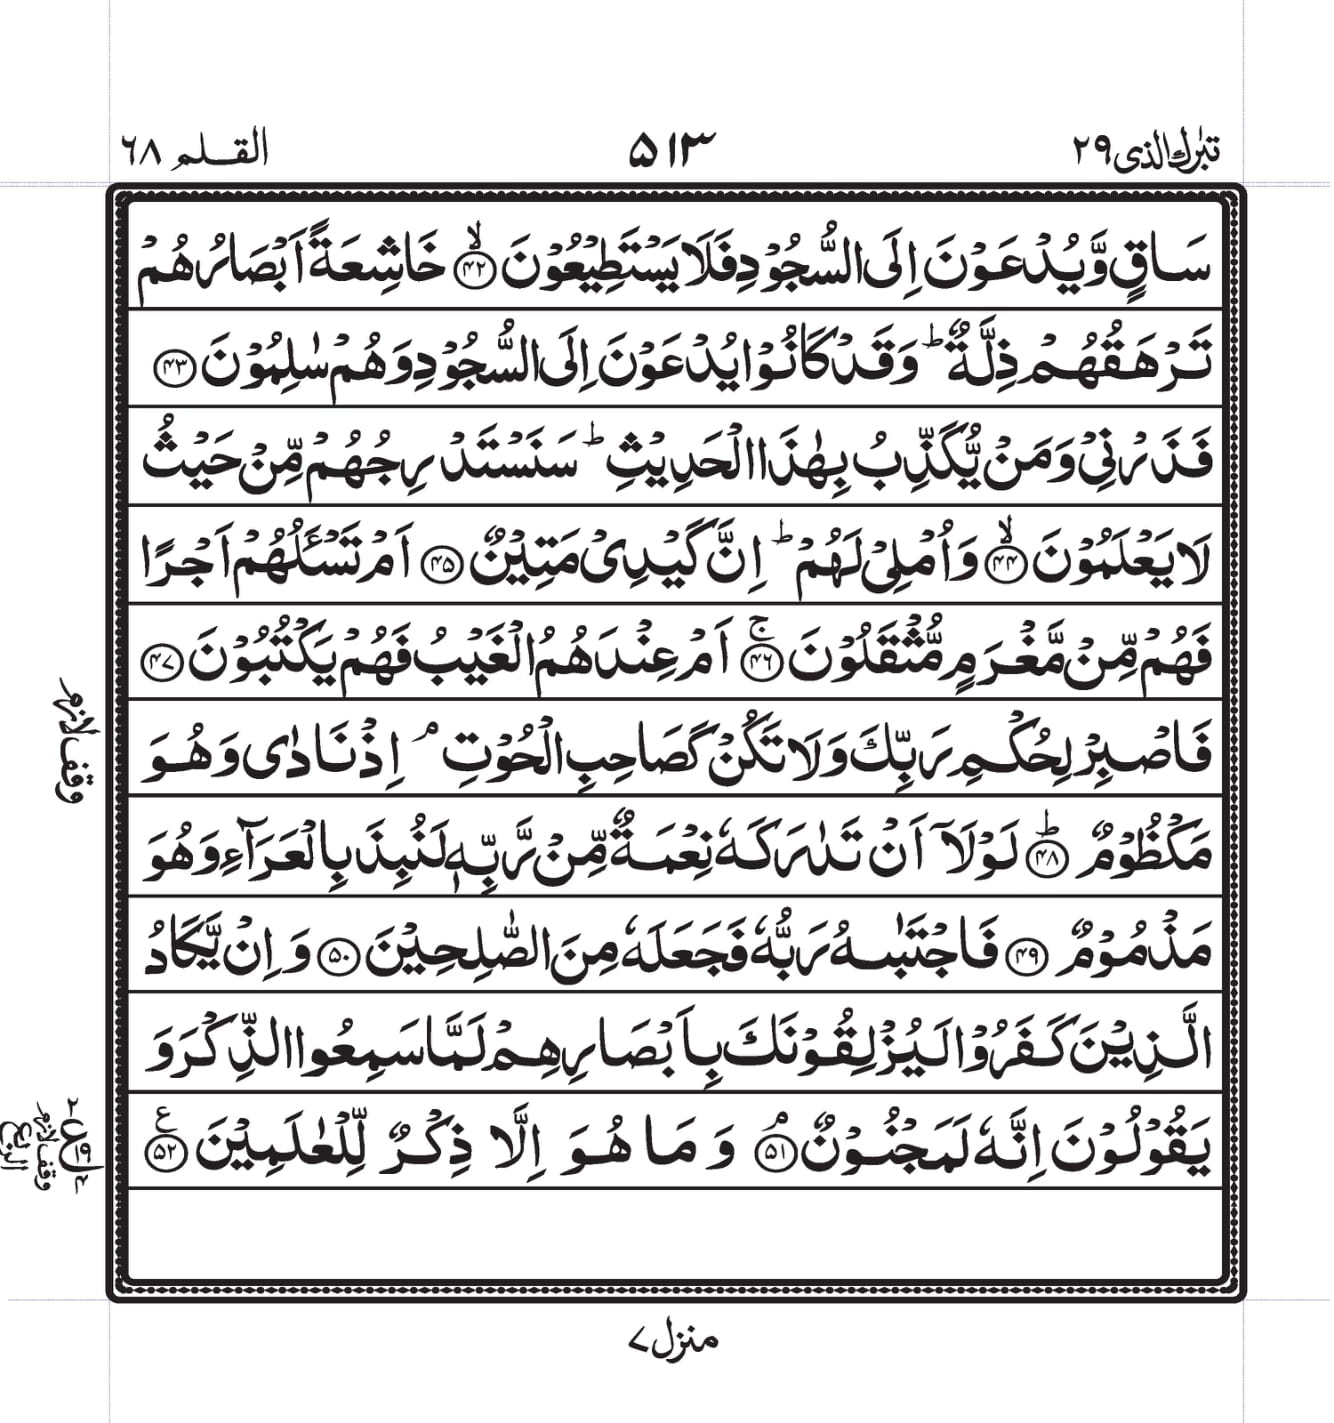 تبٰرك الذی ۲۹
۵۱۳
القلم ۶۸
سَاقٍ وَّیُدْعَوْنَ اِلَی السُّجُوْدِ فَلَا یَسْتَطِیْعُوْنَ ۙ﴿۴۲﴾ خَاشِعَةً اَبْصَارُهُمْ
تَرْهَقُهُمْ ذِلَّةٌ ؕ وَقَدْ كَانُوْا یُدْعَوْنَ اِلَی السُّجُوْدِ وَهُمْ سٰلِمُوْنَ ﴿۴۳﴾
فَذَرْنِیْ وَمَنْ یُّكَذِّبُ بِهٰذَا الْحَدِیْثِ ؕ سَنَسْتَدْرِجُهُمْ مِّنْ حَیْثُ
لَا یَعْلَمُوْنَ ۙ﴿۴۴﴾ وَاُمْلِیْ لَهُمْ ؕ اِنَّ كَیْدِیْ مَتِیْنٌ ﴿۴۵﴾ اَمْ تَسْـَٔلُهُمْ اَجْرًا
فَهُمْ مِّنْ مَّغْرَمٍ مُّثْقَلُوْنَ ۚ﴿۴۶﴾ اَمْ عِنْدَهُمُ الْغَیْبُ فَهُمْ یَكْتُبُوْنَ ﴿۴۷﴾
فَاصْبِرْ لِحُكْمِ رَبِّكَ وَلَا تَكُنْ كَصَاحِبِ الْحُوْتِ ۘ اِذْ نَادٰی وَهُوَ
مَكْظُوْمٌ ؕ﴿۴۸﴾ لَوْلَاۤ اَنْ تَدٰرَكَهٗ نِعْمَةٌ مِّنْ رَّبِّهٖ لَنُبِذَ بِالْعَرَآءِ وَهُوَ
مَذْمُوْمٌ ﴿۴۹﴾ فَاجْتَبٰىهُ رَبُّهٗ فَجَعَلَهٗ مِنَ الصّٰلِحِیْنَ ﴿۵۰﴾ وَاِنْ یَّكَادُ
الَّذِیْنَ كَفَرُوْا لَیُزْلِقُوْنَكَ بِاَبْصَارِهِمْ لَمَّا سَمِعُوا الذِّكْرَ وَ
یَقُوْلُوْنَ اِنَّهٗ لَمَجْنُوْنٌ ۘ﴿۵۱﴾ وَمَا هُوَ اِلَّا ذِكْرٌ لِّلْعٰلَمِیْنَ ﴿۵۲﴾ ع
وقف لازم
وقف لازم
منزل ۷